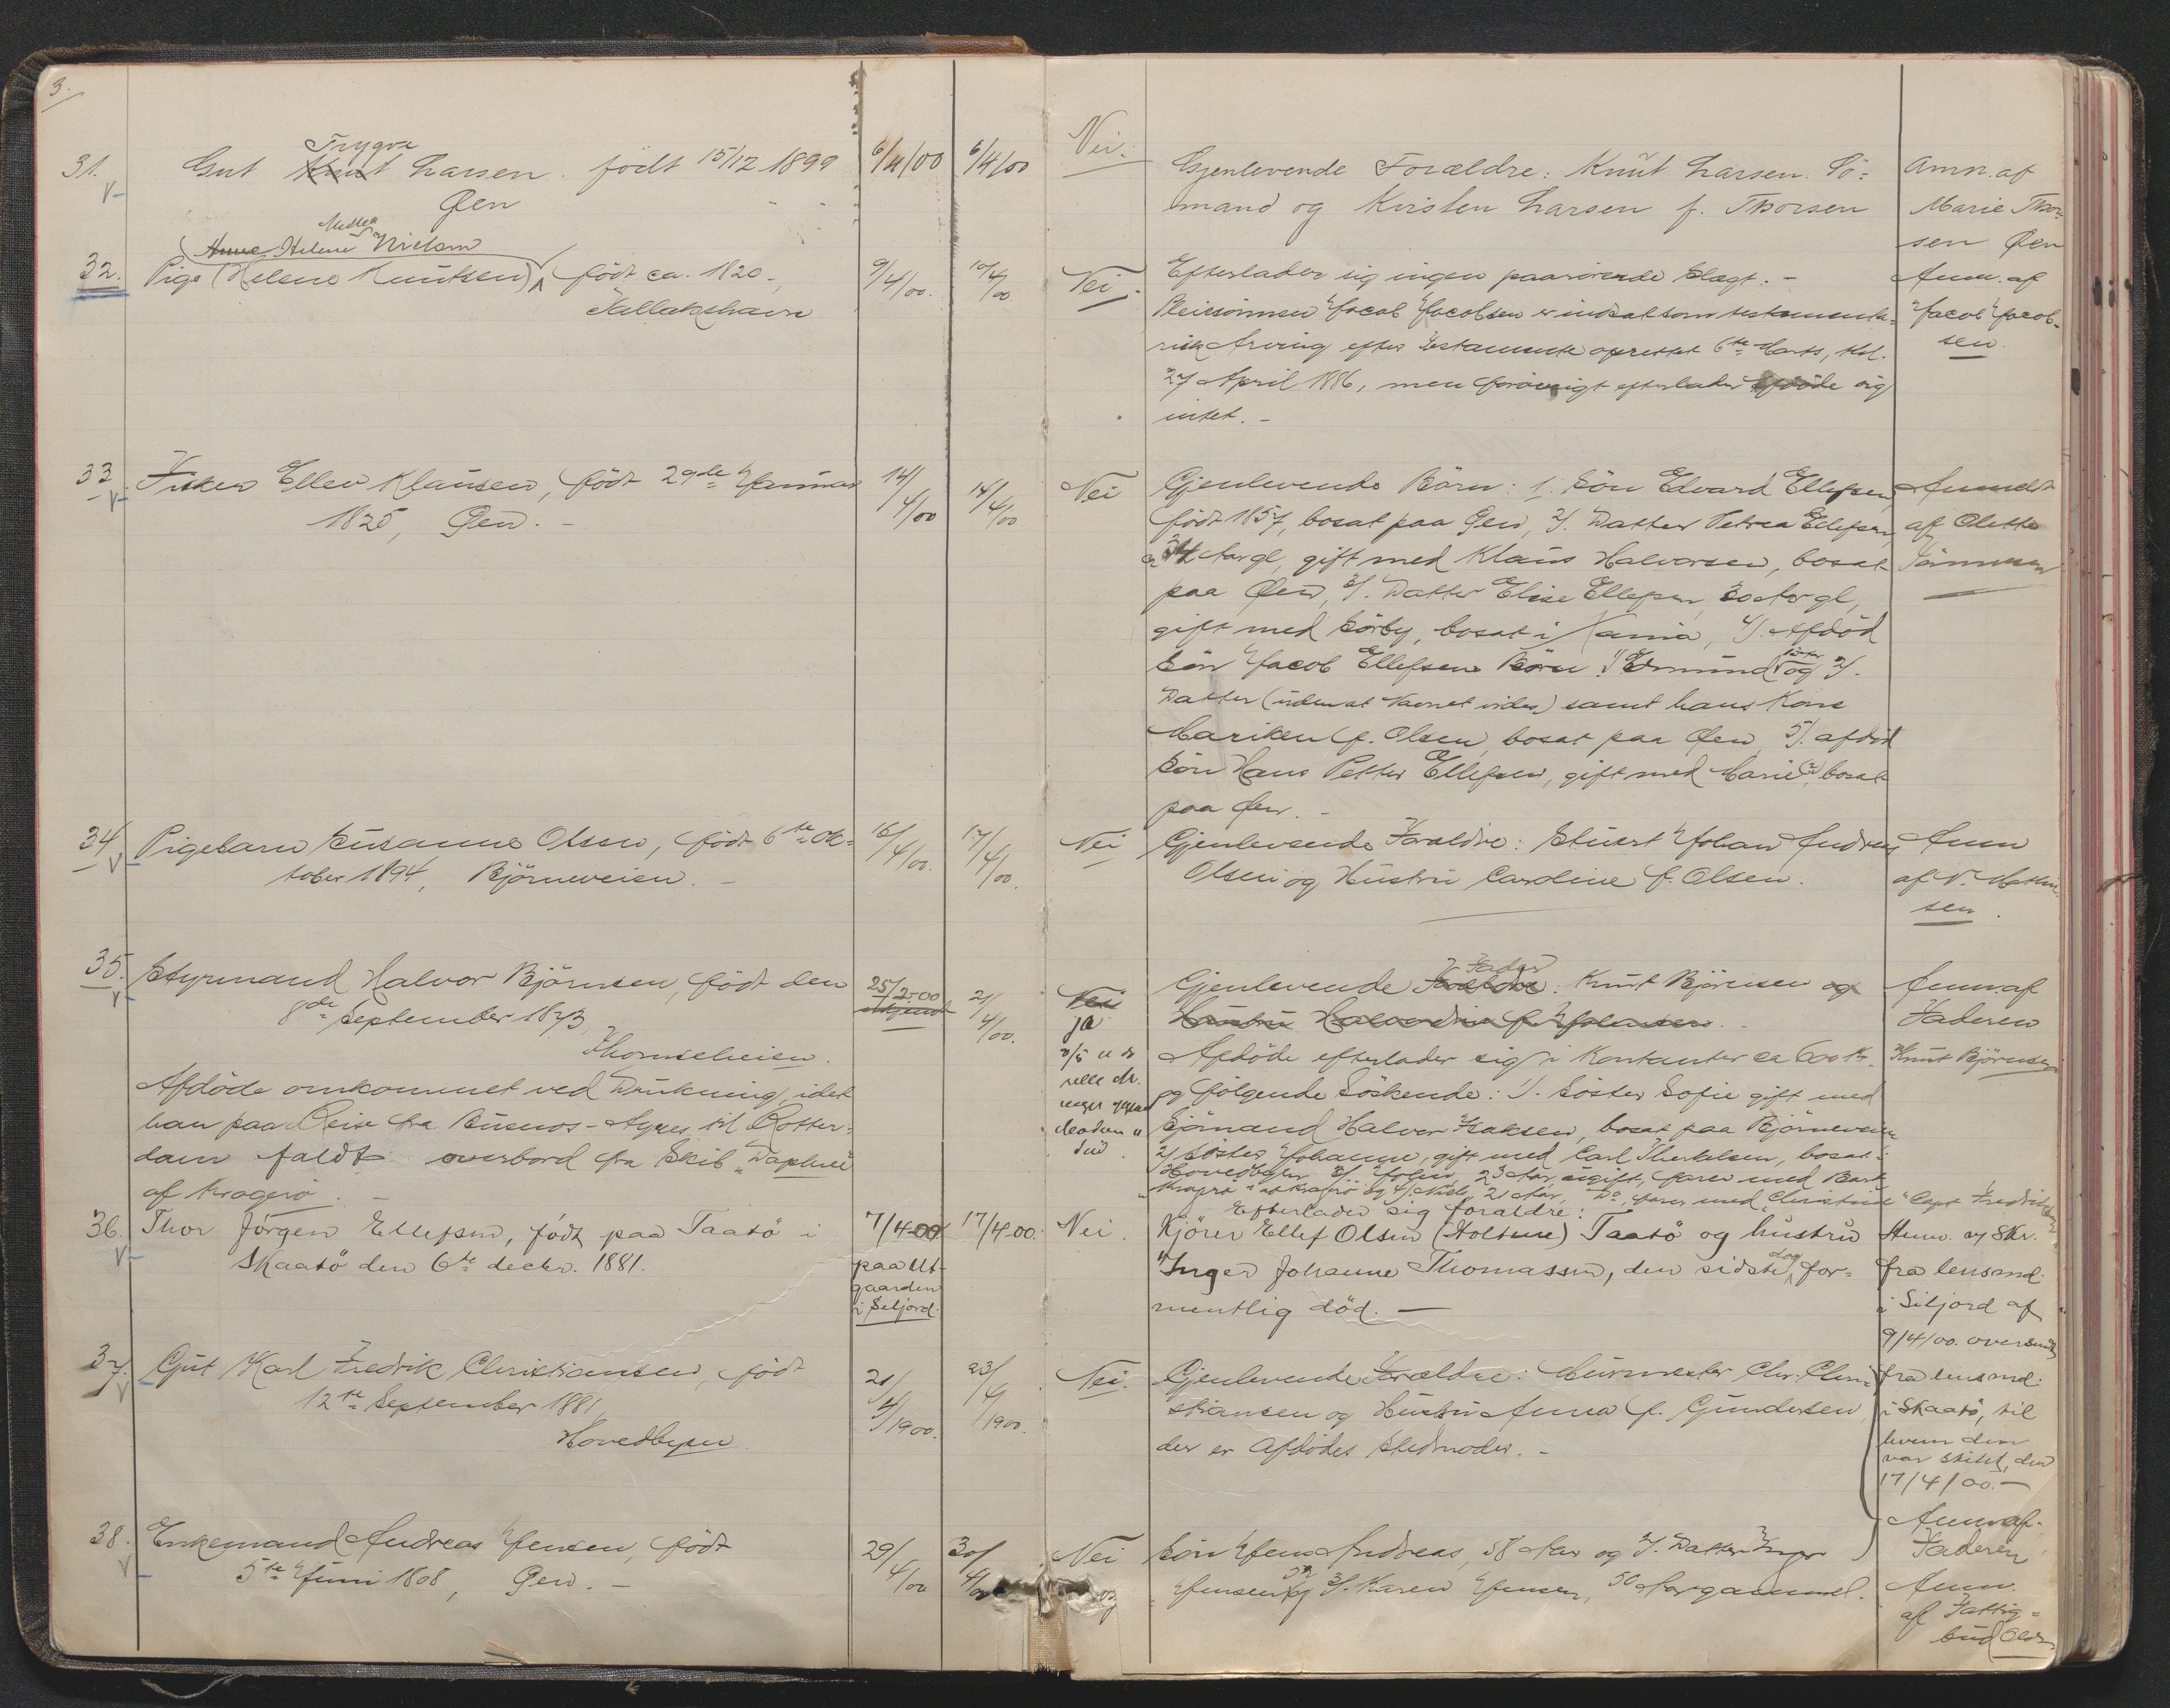 3.
31. Gut Trygve Knut Larsen. født 15/12 1899 6/4/00 6/4/00 Nei.
Øen
Gjenlevende Forældre: Knut Larsen. Sö-
mand og Kirsten Larsen f. Thorsen
Anm. af
Marie Thor-
sen Øen
Anne Helene Nielsen
32. Pige (Helene Knutsen) født ca. 1820. 9/4/00. 10/4/00. Nei.
Kallakshavn
Efterlader sig ingen paarörende Slægt. -
Pleiesönnen Jacob Jacobsen er indsat som testamenta-
risk Arving efter Testamente oprettet 6te Marts,
27 April 1886, men forövrigt efterlader afdöde sig
intet. -
Anm. af
Jacob Jacob-
sen.
33. Fisker Ellev Klausen, födt 29de Januar 14/4/00 14/4/00 Nei
1825, Øen. -
Gjenlevende Börn: 1. Sön Edvard Ellefsen,
födt 1857, bosat paa Øen, 2/. Datter Petrea Ellefsen,
Aar gl, gift med Klaus Halvorsen, bosat
paa Øen, 3/. Datter Elise Ellefsen, Aar gl,
gift med Sörby, bosat i Xania, 4/. Afdöd
Sön Jacob Ellefsens Börn 1/ Edmund og 2/.
Datter (uden at Navnet vides) samt hans Kone
Mariken f. Olsen, bosat paa Øen, 5/. afdöd
Sön Hans Petter Ellefsen, gift med Marie (?), bosat
paa Øen. -
Anmeldt
af Olette
34. Pigebarn Susanne Olsen, födt 6te Ok- 16/4/00. 17/4/00. Nei
tober 1894, Björneveien. -
Gjenlevende Forældre: Stuert Johan Andreas
Olsen og Hustru Caroline f. Olsen.
Anm
af N. Mathi-
sen.
35. Styrmand Halvor Björnsen, födt den 25/2-00 21/4/00. Nei
8de September 1873, ja
Thomesheien.
Afdöde omkommet ved Drukning, idet
han paa Reise fra Buenos-Ayres til Rotter-
dam faldt overbord fra Skib "Daphne"
af Kragerö. -
Gjenlevende Forældre Fader: Knut Björnsen og
Hustru Halvordine f. Johansen.
Afdöde efterlader sig i Kontanter ca 600 Kr.
og fölgende Söskende: 1/. Söster Sofie gift med
Sjömand Halvor Isaksen, bosat paa Björneveien
2/ Söster Johanne, gift med Carl Therkelsen, bosat i
Hovedbyen 3/ John, 23 Aar, ugift, farer med Bark
"Kragerö" af Kragerö og 4/. Niels, 21 Aar, Do, farer med "Christine" Capt Fredriksen
Anm. af
Faderen
Knut Björnsen
36. Thor Jørgen Ellefsen, født paa Taatö i 7/4-00 17/4-00. Nei.
Skaatö den 6te decbr. 1881.
paa Ut-
gaarden
i Seljord.
Efterlader sig foraldre:
Kjörer Ellef Olsen (Holtene) Taatö og hustru
Inger Johanne Thomassen, den sidste dog for-
mentlig död. —
Anm. ag Skr.
fra lensmd.
i Siljord af
9/4/00. oversendt
fra lensmd.
i Skaatö, til
hvem den
var skikket, den
17/4/00. —
37. Gut Karl Fredrik Christiansen, födt 21/4/1900. 23/4/1900. Nei.
12te September 1881,
Hovedbyen
Gjenlevende Forældre: Murmester Chr. Chri-
stiansen og Hustru Anna f. Gundersen
der er Afdödes Stedmoder. -
Anm. af
Faderen
38. Enkemand Andreas Jensen, födt 29/4/00 30/4/00 Nei
5te Juni 1808, Øen. -
Sön Jens Andreas, 58 Aar og 2/. Datter Inger
Jensen og 3/. Karen Jensen, 50 Aar gammel.
Anm.
af Fattig-
bud Olsen